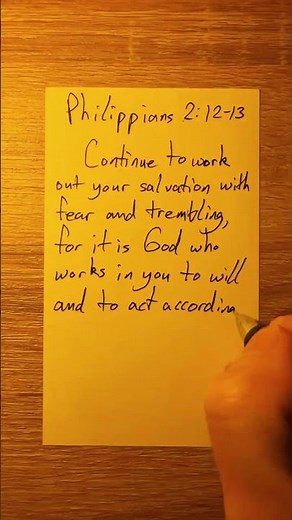 Philippians 2:12-13
Continue to work
out your salvation with
fear and trembling,
for it is God who
works in you to will
and to act accordin